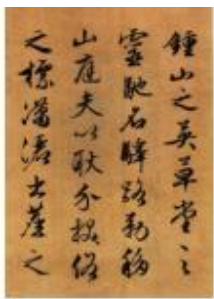 鍾山之英草堂之
靈馳名驛路勒移
山庭夫以耿介拔俗
之標瀟灑出塵之